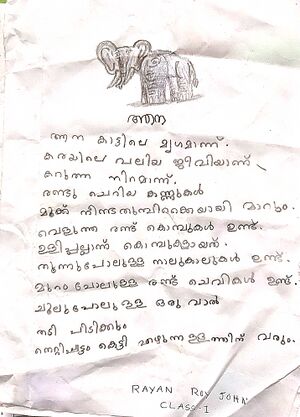 ആന
ആന കാട്ടിലെ മൃഗമാണ്.
കരയിലെ വലിയ ജീവിയാണ്.
കറുത്ത നിറമാണ്.
രണ്ടു ചെറിയ കണ്ണുകൾ
മൂക്ക് നീണ്ട തുമ്പിക്കൈയായി മാറും.
വെളുത്ത രണ്ട് കൊമ്പുകൾ ഉണ്ട്.
ഉളിപ്പല്ലാണ് കൊമ്പുകളായത്.
തൂണുപോലുള്ള നാലുകാലുകൾ ഉണ്ട്.
മുറം പോലുള്ള രണ്ട് ചെവികൾ ഉണ്ട്.
ചൂലുപോലുള്ള ഒരു വാൽ
തടി പിടിക്കും
നെറ്റിപ്പട്ടം കെട്ടി എഴുന്നള്ളത്തിന് വരും.
RAYAN ROY JOHN
CLASS-I